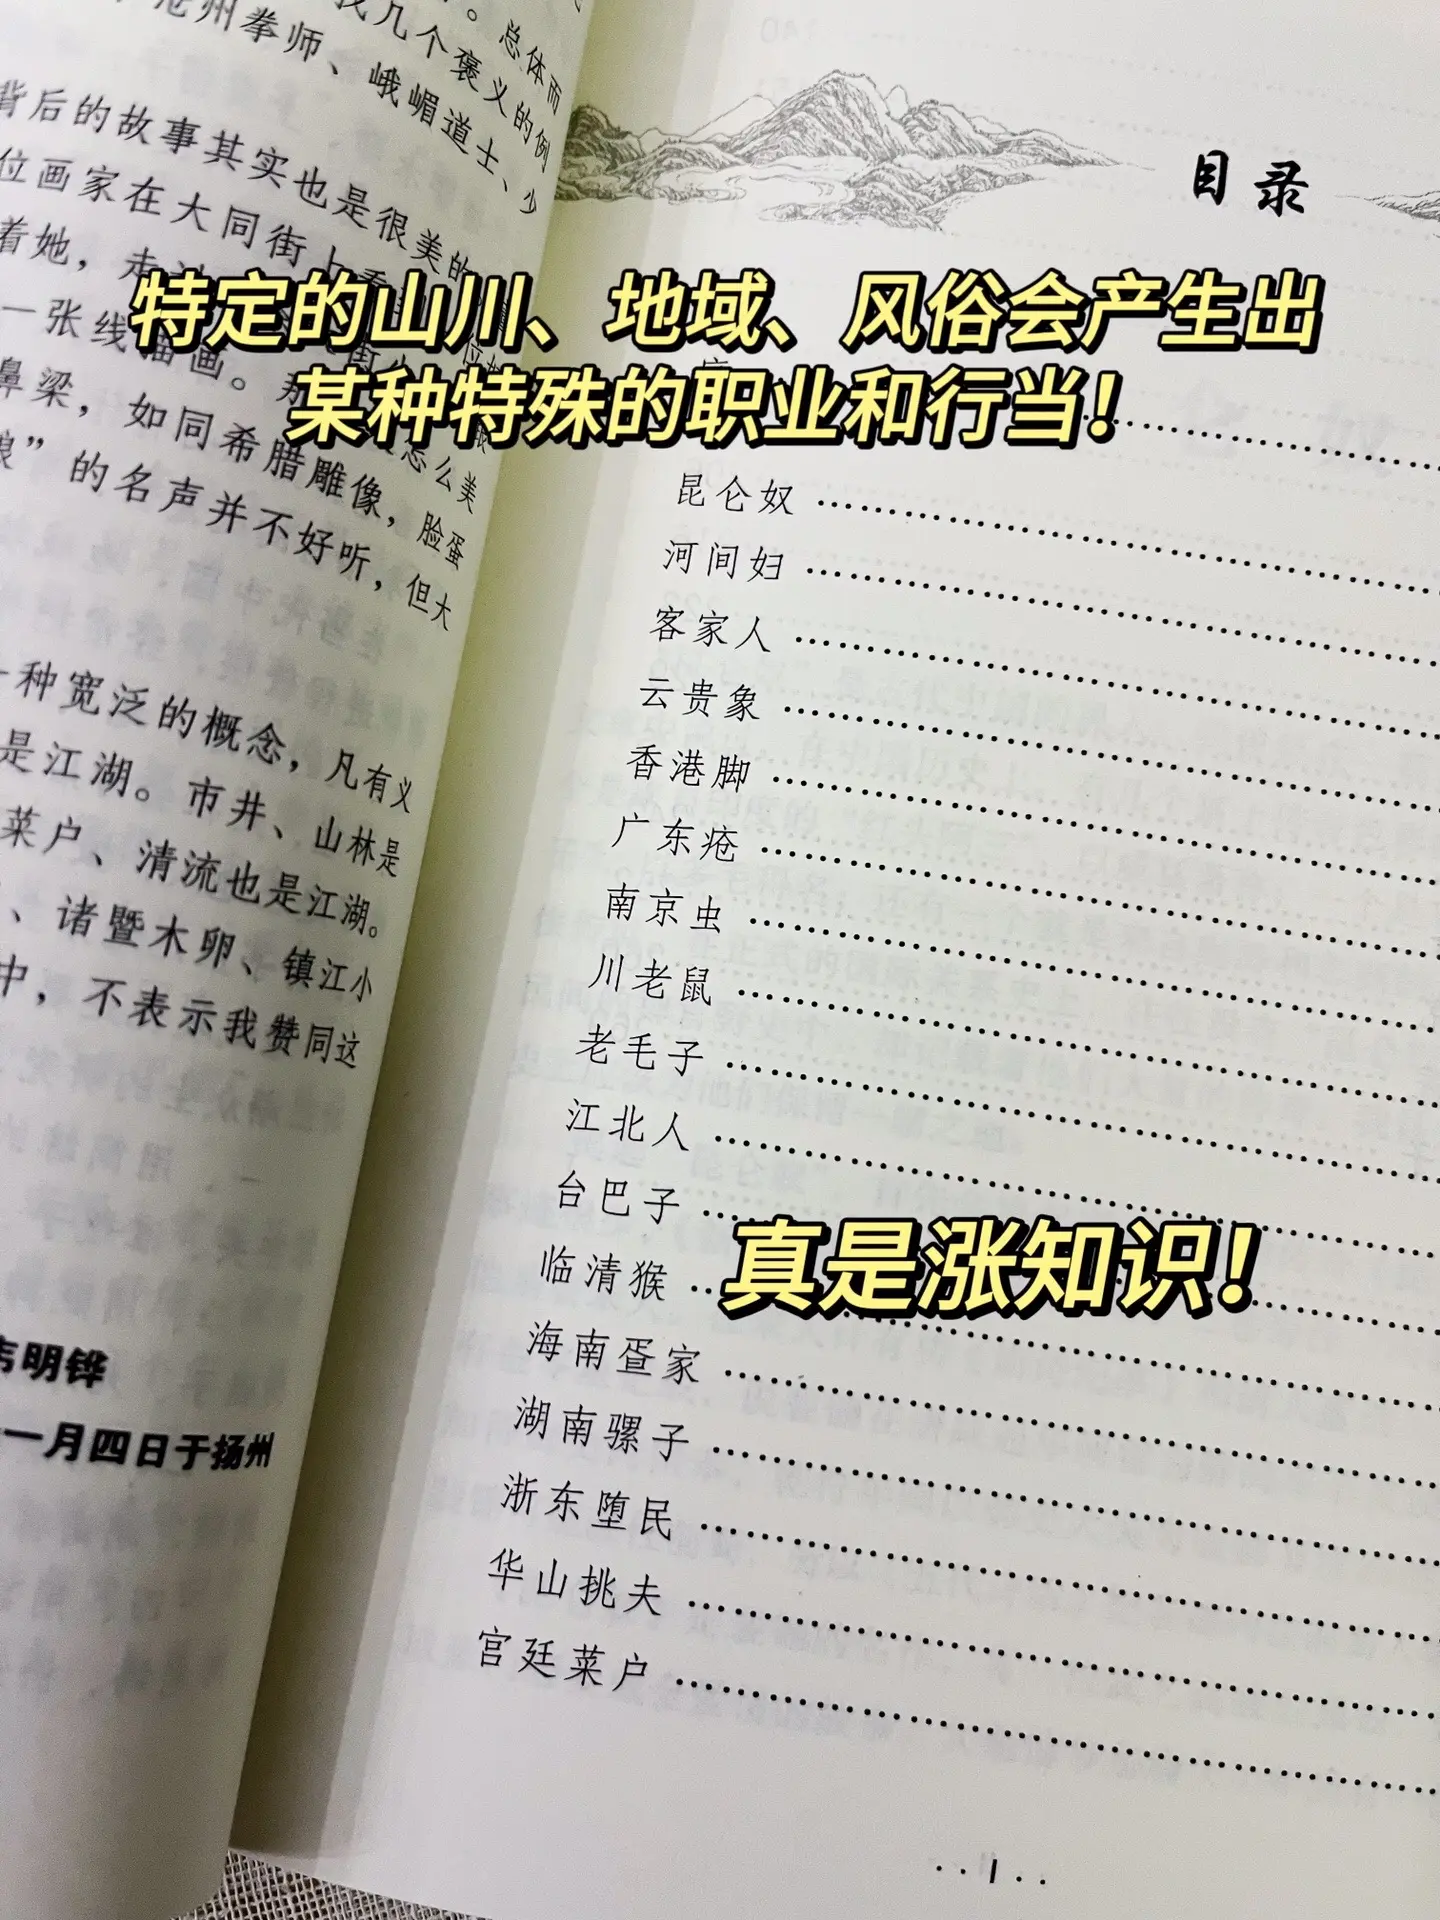 。总体而
几个褒义的例
沧州拳师、峨嵋道士、少
背后的故事其实也是很美的
位画家在大同街上看
着她，走
一张线描画。
鼻梁，如同希腊雕像，脸蛋
怎么美
”的名声并不好听，但大
一种宽泛的概念，凡有义
是江湖。市井、山林是
菜户、清流也是江湖。
、诸暨木卵、镇江小
中，不表示我赞同这
韦明铧
一月四日于扬州
目录
特定的山川、地域、风俗会产生出
某种特殊的职业和行当！
昆仑奴
河间妇
客家人
云贵象
香港脚
广东疮
南京虫
川老鼠
老毛子
江北人
台巴子
真是涨知识！
临清猴
海南疍家
湖南骡子
浙东堕民
华山挑夫
宫廷菜户
1